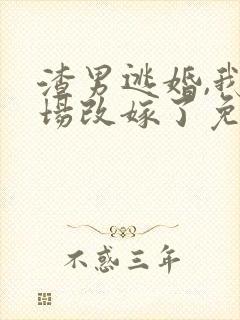 渣男逃婚,我
场改嫁了免
不惑三年